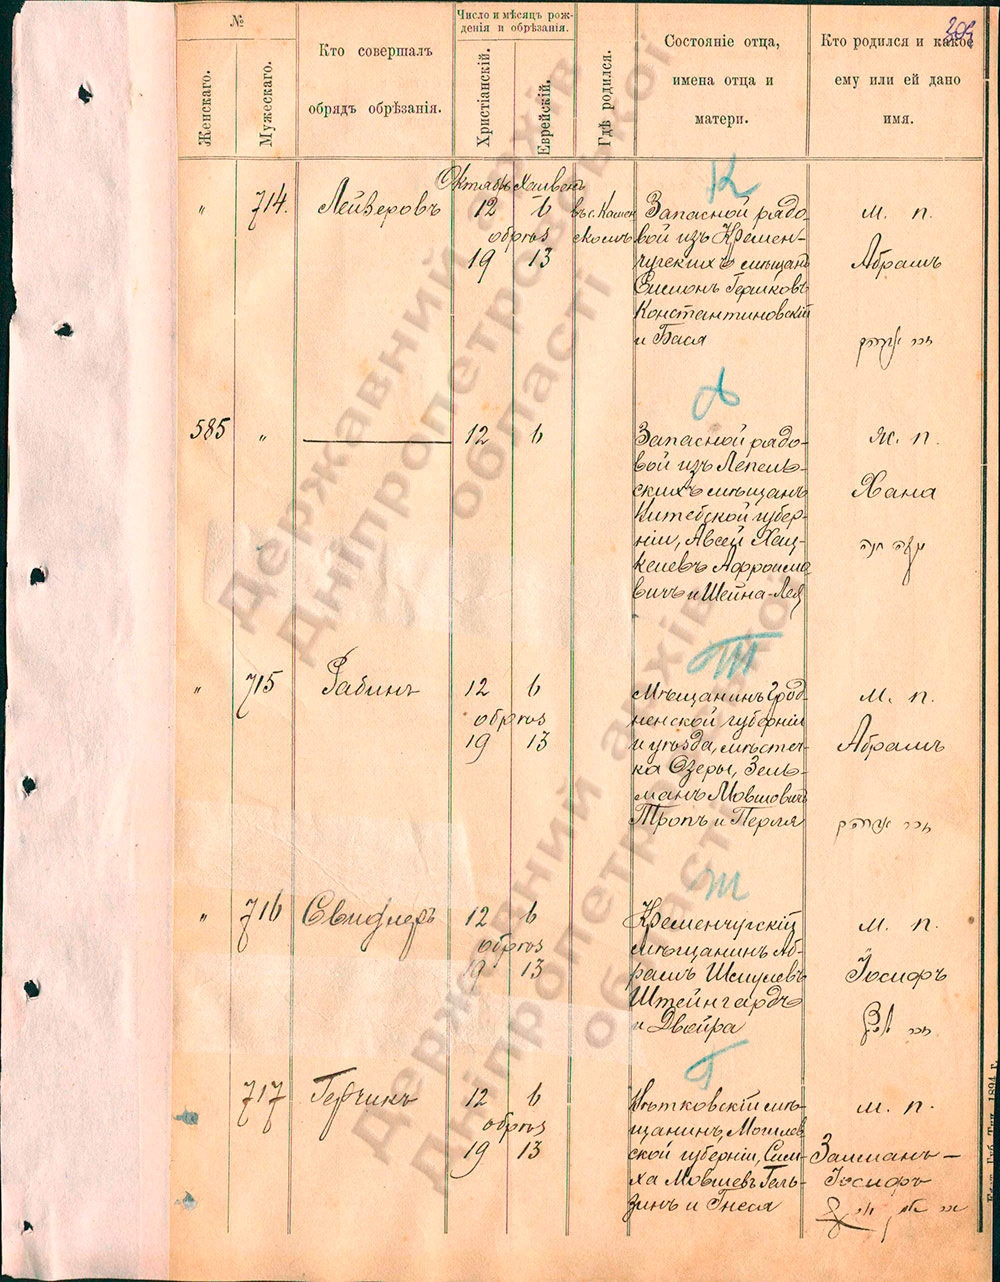 209
№
Женскаго.
Мужескаго.
Кто совершалъ
обрядъ обрѣзанія.
Число и мѣсяцъ рож-
денія и обрѣзанія.
Христіанскій.
Еврейскій.
Гдѣ родился.
Состояніе отца,
имена отца и
матери.
Кто родился и какое
ему или ей дано
имя.
К
Октябрь Хешвонъ
" 714. Лейзеровъ 12 6 въ с. Камен
скомъ
обрѣз
19 13
Запасной рядо-
вой изъ Кремен-
чугскихъ мѣщанъ
Симонъ Гершковъ
Константиновскій
и Бася
м. п.
Абрамъ
Л
585 " 12 6
Запасной рядо-
вой изъ Лепель-
скихъ мѣщанъ
Витебской губер-
ніи, Авсей Хац-
келевъ Афроимо
вичъ и Шейна-Лея
ж. п.
Хана
חנה
Т
" 715 Рабинъ 12 6
обрѣз
19 13
Мѣщанинъ Грод-
ненской губерніи
и уѣзда, мѣстеч-
ка Озеры, Зель-
манъ Мовшовичъ
Тропъ и Перля
м. п.
Абрамъ
Ш
" 716 Свидлеръ 12 6
обрѣз
19 13
Кременчугскій
мѣщанинъ Аб-
рамъ Шмулевъ
Штейнгардъ
и Двейра
м. п.
Іосифъ
Г
717 Герчикъ 12 6
обрѣз
19 13
Вѣтковскій мѣ-
щанинъ, Могилев
ской губерніи, Сим-
ха Мовшевъ Гель-
зинъ и Гнеся
м. п.
Залманъ-
Іосифъ
Губ. Тип. 1894 г.
Державний архів
Дніпропетровської
області
Державний архів
Дніпропетровської
області